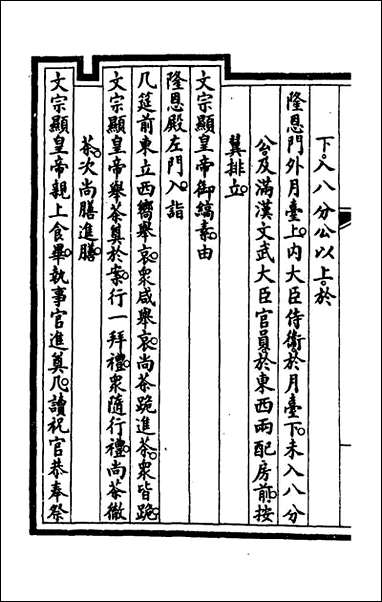 下。入八分公以上。於
隆恩門外月臺上。內大臣侍衛於月臺下。未入八分
公及滿漢文武大臣官員於東西兩配房前。按
翼排立。
文宗顯皇帝御縞素。由
隆恩殿左門入。詣
几筵前東立西嚮舉哀。衆咸舉哀。尚茶跪進茶。衆皆跪。
文宗顯皇帝舉茶奠於案。行一拜禮。衆隨行禮。尚茶徹
茶。次尚膳進膳。
文宗顯皇帝親上食畢。執事官進奠几。讀祝官恭奉祭